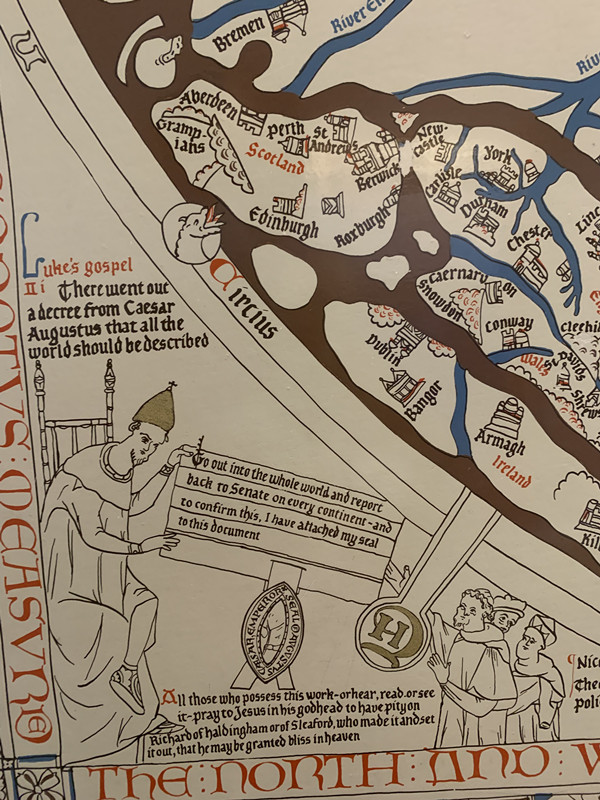 Bremen
River
Aberdeen
Gramp
ians
Perth
St
Andrew's
Scotland
Berwick
Edinburgh
Roxburgh
New-
castle
York
Carlisle
Durham
Chester
Caernarvon
Snowdon
Conway
Wales
Davids
Dublin
Bangor
Armagh
Ireland
Circius
Luke's gospel
II i There went out
a decree from Caesar
Augustus that all the
world should be described
Go out into the whole world and report
back to Senate on every continent-and
to confirm this, I have attached my seal
to this document
SEAL OF AUGUSTUS
CAESAR EMPEROR
H
All those who possess this work-or hear, read, or see
it-pray to Jesus in his godhead to have pity on
Richard of Haldingham or of Sleaford, who made it and set
it out, that he may be granted bliss in heaven
MEASURE
THE : NORTH : AND : W